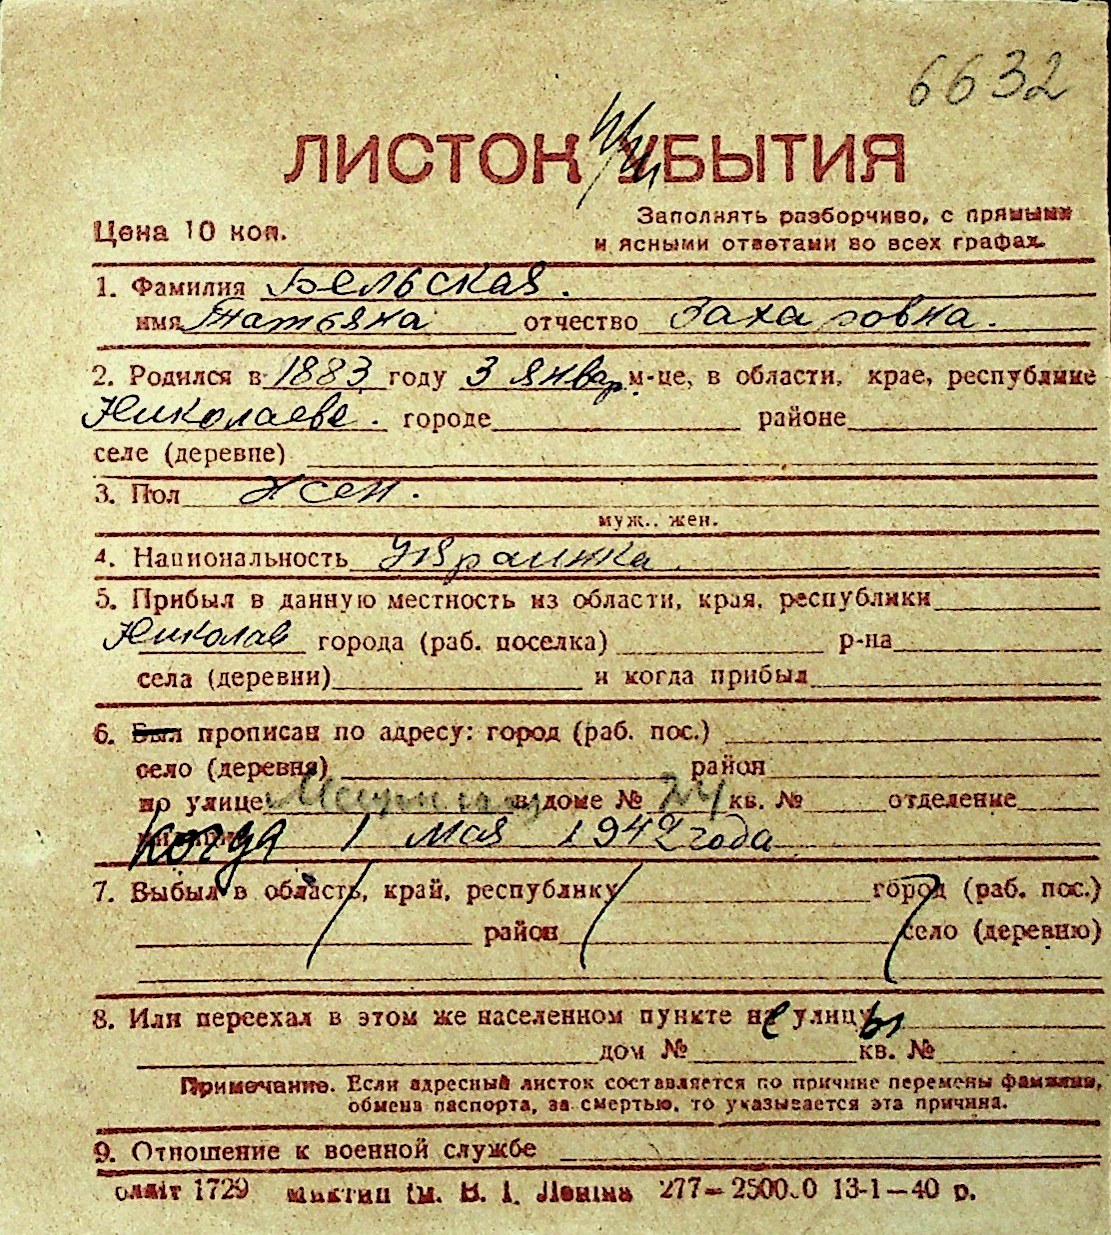 6632
ЛИСТОК УБЫТИЯ
Цена 10 коп.
Заполнять разборчиво, с прямыми
и ясными ответами во всех графах.
1. Фамилия Бельская.
имя Татьяна отчество Захаровна.
2. Родился в 1883 году 3 январ. м-це, в области, крае, республике
Николаеве. городе районе
селе (деревне)
3. Пол жен.
муж., жен.
4. Национальность Украинка
5. Прибыл в данную местность из области, края, республики
Николаев города (раб. поселка) р-на
села (деревни) и когда прибыл
6. Был прописан по адресу: город (раб. пос.)
село (деревня) район
по улице в доме № 24 кв. № отделение
когда 1 мая 1942 года
7. Выбыл в область, край, республику город (раб. пос.)
район село (деревню)
8. Или переехал в этом же населенном пункте не улицы
дом № кв. №
Примечание. Если адресный листок составляется по причине перемены фамилии,
обмена паспорта, за смертью, то указывается эта причина.
9. Отношение к военной службе
1729 ім. В. І. Леніна 277—25000 13-1—40 р.